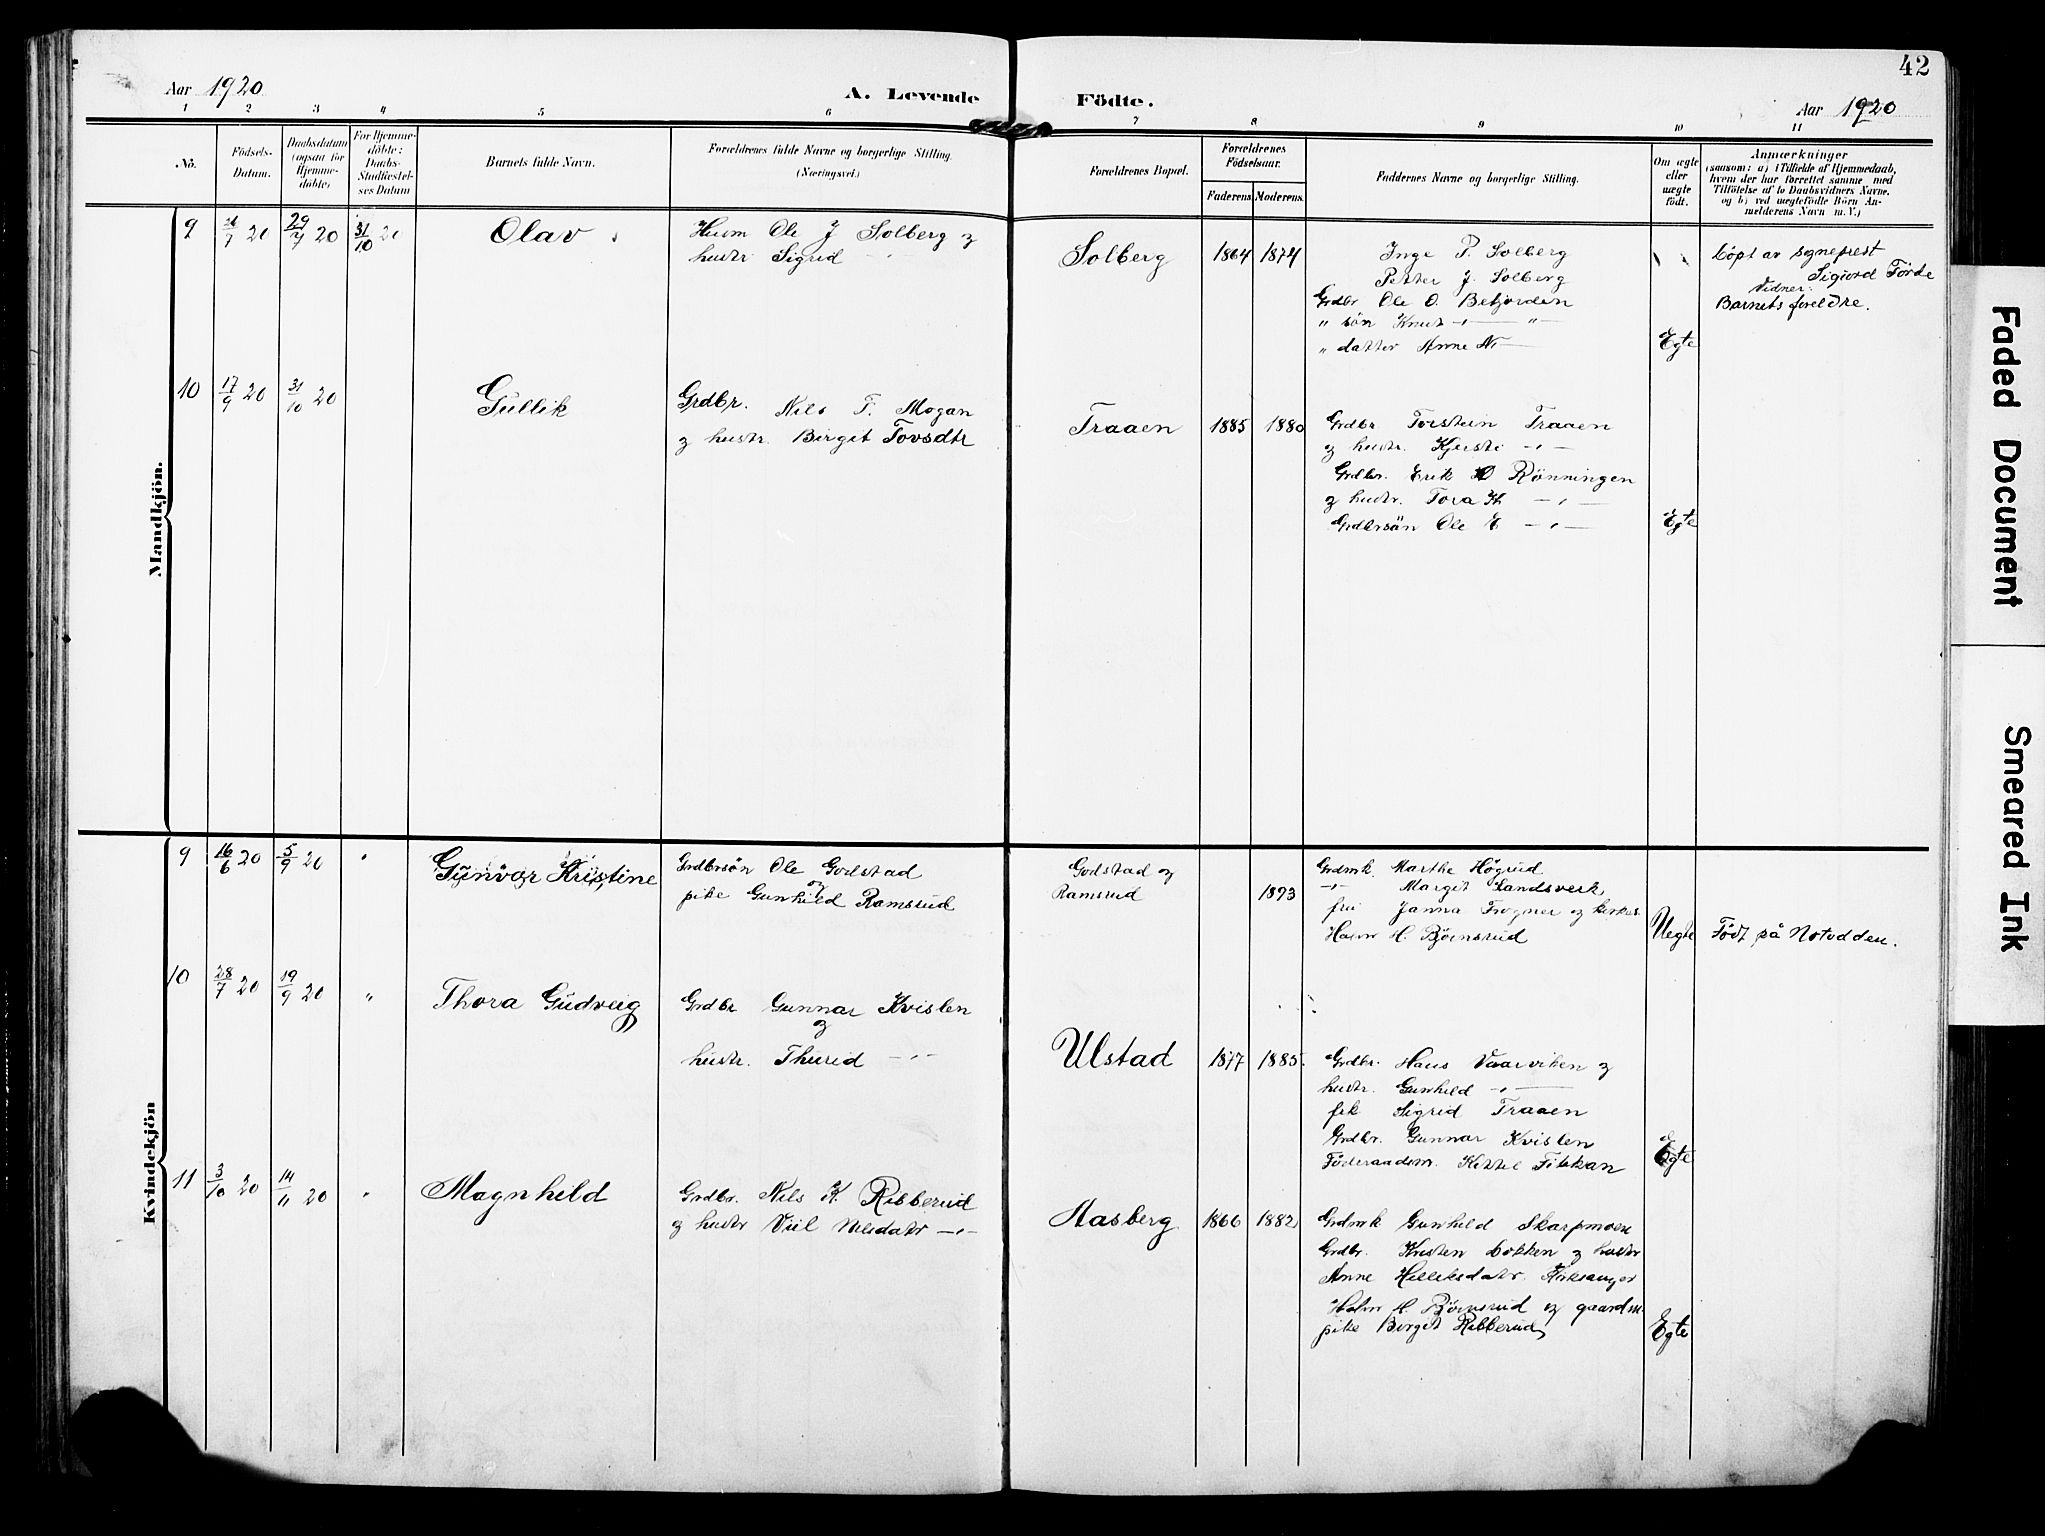 42
Aar 1920
A. Levende Födte.
Aar 1920
1 2 3 4 5 6 7 8 9 10 11
No.
Födsels-Datum.
Daabsdatum (ogsaa for Hjemme-döbte)
For Hjemme-döbte: Daabs-Stadfæstel-ses Datum
Barnets fulde Navn.
Forældrenes fulde Navne og borgerlige Stilling.
(Næringsvei.)
Forældrenes Bopæl.
Forældrenes Födselsaar.
Faderens Moderens
Faddernes Navne og borgerlige Stilling.
Om ægte eller uægte födt.
Anmærkninger
(saasom: a) i Tilfælde af Hjemmedaab,
hvem der har forrettet samme med
Tilföielse af to Daabsvidners Navne.
og b) ved uægtefödte Börn An-
melderens Navn m. V.)
Mandkjön.
9 /7 20 29/7 20 31/10 20
Olav
Husm Ole J Solberg og
hustr Sigrid -"-
Solberg 1864 1874
Inge P. Solberg
Petter J. Solberg
Grdbr Ole O. Betjorden
" sön Knut -"- "
" datter Anne N. -
Egte
Döpt av sogneprest
Sigurd Förde
Vidner:
Barnets foreldre.
10 17/9 20 31/10 20
Gullik
Grdbr. Nils T. Mogan
og hustr. Birgit Tovsdtr
Traaen 1885 1880
Grdbr Torstein Traaen
og hustr. Kjersti -"-
Grdbr. Erik O Rönningen
og hustr. Tora H -"-
Grdbrsön Ole E -"-
Egte
Kvindekjön
9 16/6 20 5/9 20 "
Gunvor Kristine
Grdbrsön Ole Godstad
og
pike Gunhild Ramsrud
Godstad og
Ramsrud 1893
Grdmk. Marthe Högrud
-"- Margit Landsverk,
fru Janna Frogner og kirkes.
Halvor H. Björnsrud
Uegte
Födt på Notodden.
10 28/7 20 19/9 20 "
Thora Gudveig
Grdbr Gunnar Kvislen
og
hustr. Thurid -"-
Ulstad 1877 1885.
Grdbr. Hans Vaarviken og
hustr. Gunhild -"-
frk Sigrid Traaen
Grdbr. Gunnar Kvislen
Föderaadsm. Kittel Tikkan
Egte
11 3/10 20 14/11 20 "
Magnhild
Grdbr. Nils K. Ribberud
og hustr Viil Nilsdatr -"-
Aasberg 1866 1882
Grdmk Gunhild Skarpmoen
Grdbr. Kristen Bakken og hustr
Anne Helliksdatr. Kirksanger
Halvor H. Björnsrud og gaardm.
pike Birgit Ribberud
Egte
Faded Document
Smeared Ink